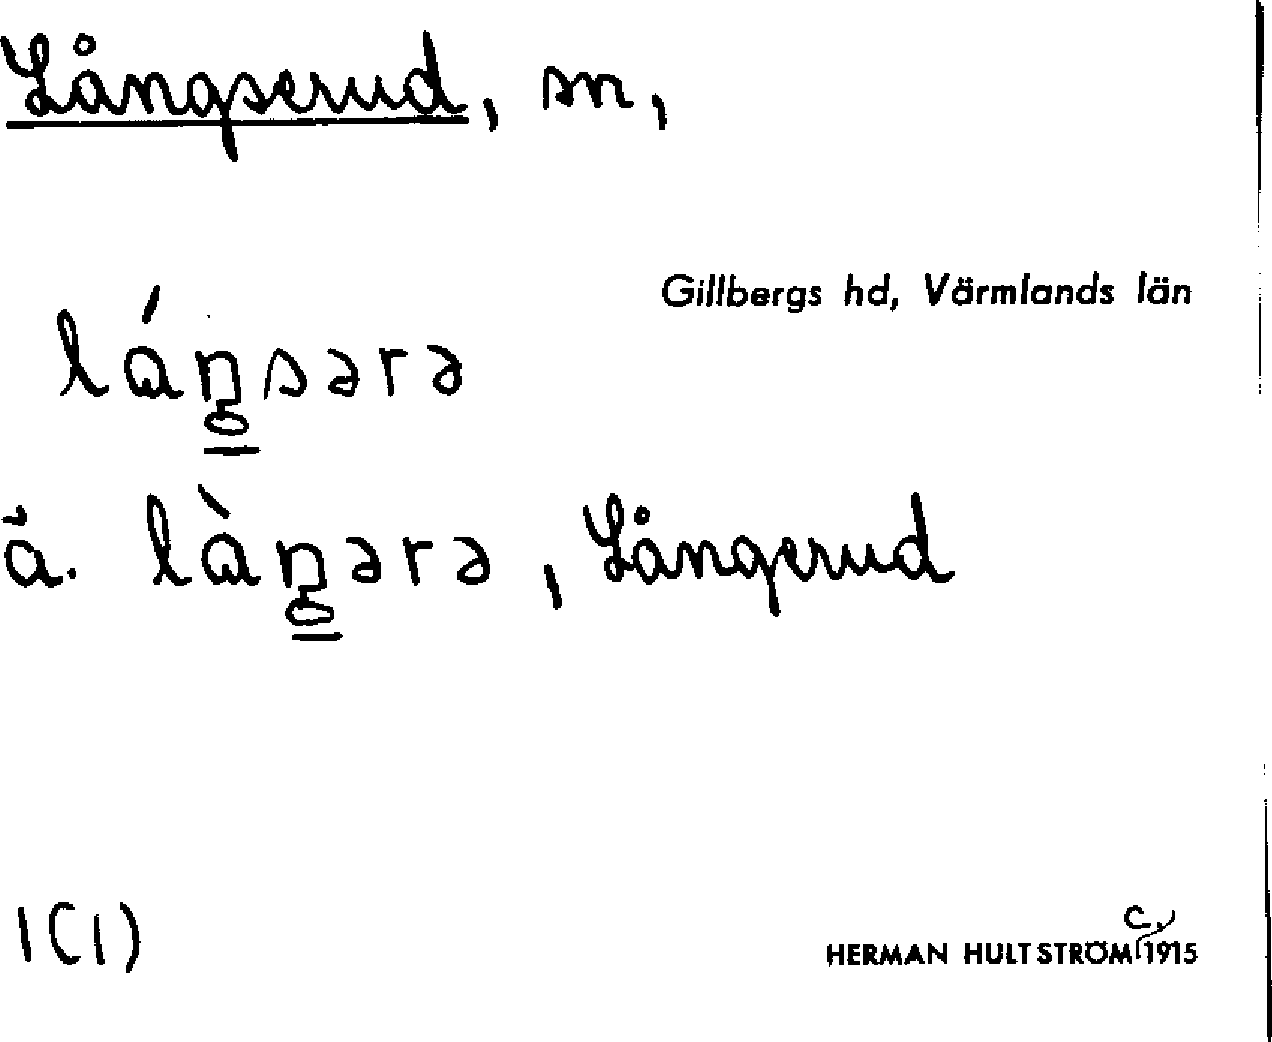 Långserud, sn,
Gillbergs hd, Värmlands län
lá̱ŋsərə
ä. làŋərə, Långerud
1(1)
HERMAN HULTSTRÖM c. 1915